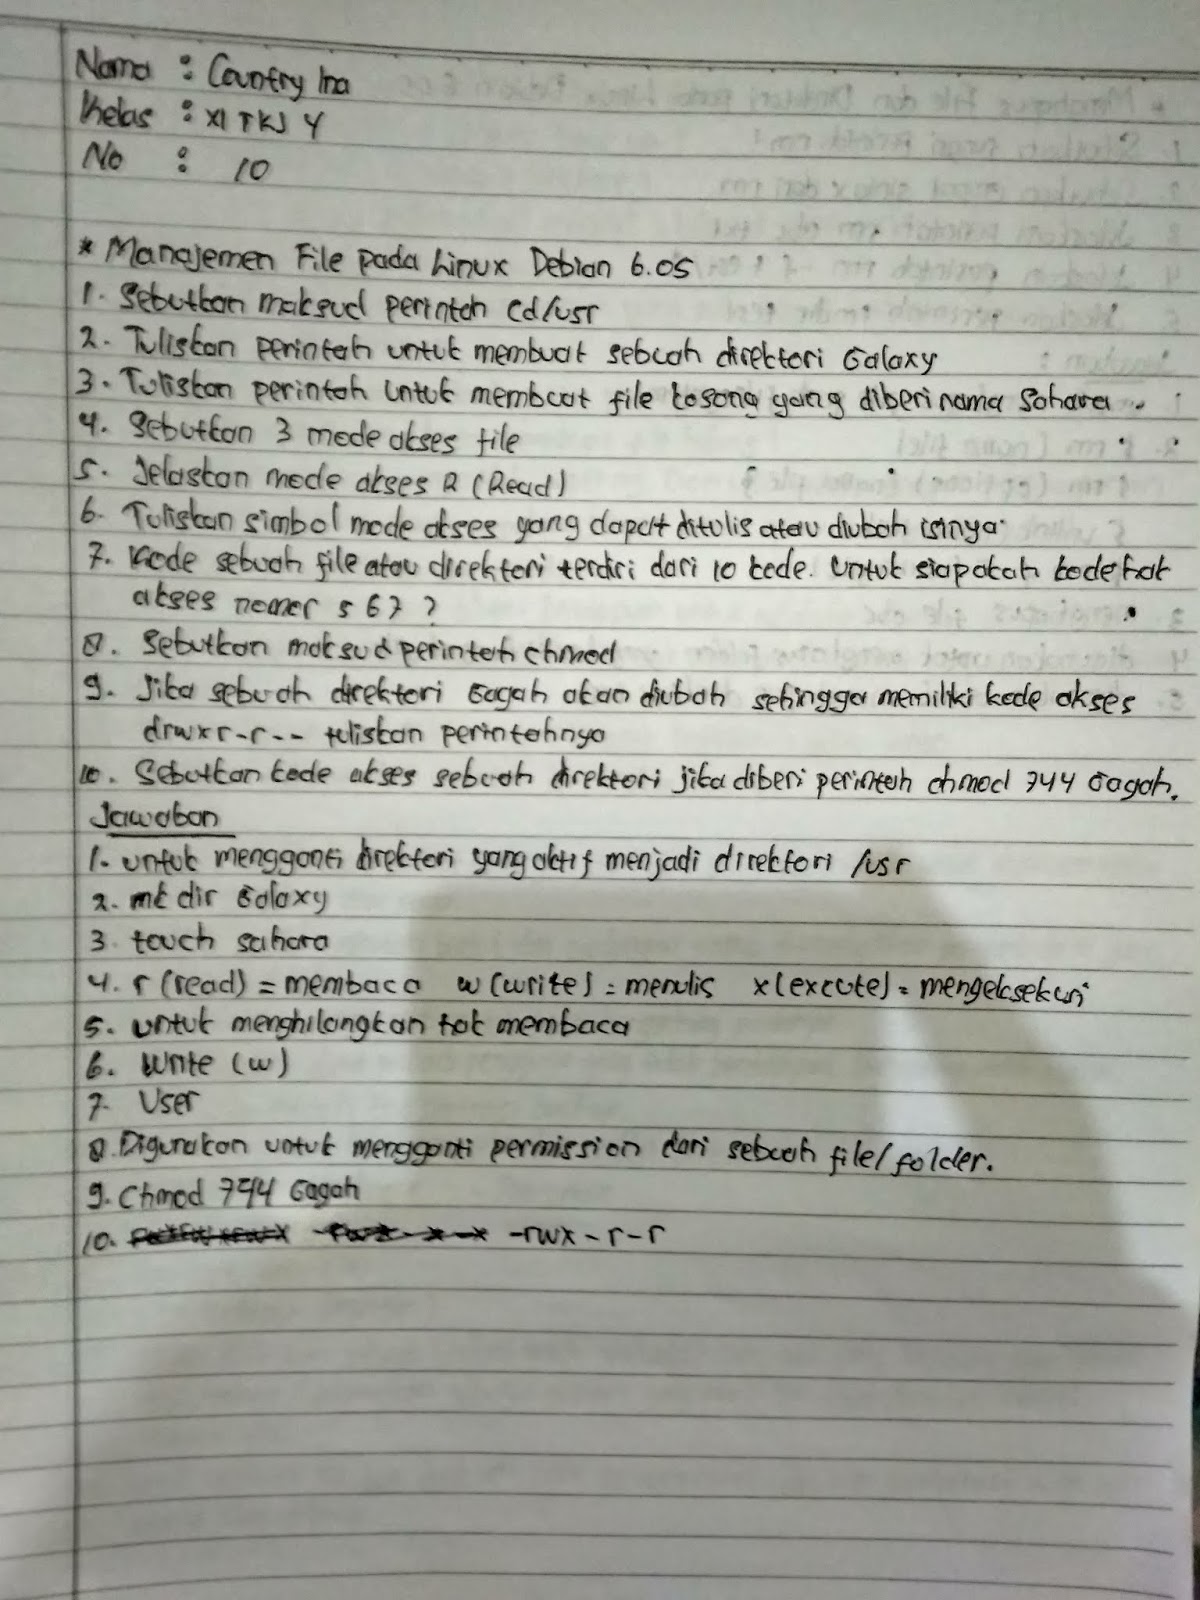 Nama : Country Ina
Kelas : XI TKJ 4
No : 10
* Manajemen File pada Linux Debian 6.05
1. Sebutkan maksud perintah cd/usr
2. Tuliskan perintah untuk membuat sebuah direktori Galaxy
3. Tuliskan perintah untuk membuat file kosong yang diberi nama Sahara
4. Sebutkan 3 mode akses file
5. Jelaskan mode akses R (Read)
6. Tuliskan simbol mode akses yang dapat ditulis atau diubah isinya
7. Kode sebuah file atau direktori terdiri dari 10 kode. Untuk siapakah kode hak
akses nomer 5 6 7 ?
8. Sebutkan maksud perintah chmod
9. Jika sebuah direktori Gagah akan diubah sehingga memiliki kode akses
drwxr-r-- tuliskan perintahnya
10. Sebutkan kode akses sebuah direktori jika diberi perintah chmod 744 Gagah.
Jawaban
1. untuk mengganti direktori yang aktif menjadi direktori /usr
2. mk dir Galaxy
3. touch sahara
4. r (read) = membaca w (write) = menulis x (excute) = mengeksekusi
5. untuk menghilangkan hak membaca
6. Write (w)
7. User
8. Digunakan untuk mengganti permission dari sebuah file/folder.
9. Chmod 744 Gagah
10. -rwx-r-r